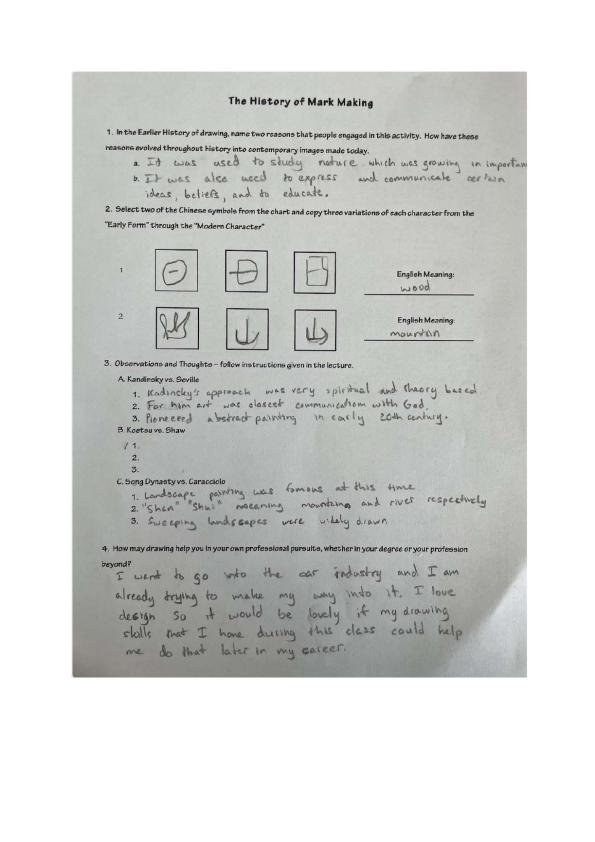 The History of Mark Making
1. In the Earlier History of drawing, name two reasons that people engaged in this activity. How have these
reasons evolved throughout history into contemporary images made today.
a. It was used to study nature which was growing in importan
b. It was also used to express and communicate certain
ideas, beliefs, and to educate.
2. Select two of the Chinese symbols from the chart and copy three variations of each character from the
"Early Form" through the "Modern Character"
1
English Meaning:
wood
2
English Meaning:
mountain
3. Observations and Thoughts – follow instructions given in the lecture.
A. Kandinsky vs. Seville
1. Kadinsky's approach was very spiritual and theory based
2. For him art was closest communication with God.
3. Pioneered abstract painting in early 20th century.
B. Koetsu vs. Shaw
1.
2.
3.
C. Song Dynasty vs. Caracciolo
1. Landscape painting was famous at this time
2. "Shan" "Shui" meaning mountains and river respectively
3. Sweeping landscapes were widely drawn
4. How may drawing help you in your own professional pursuits, whether in your degree or your profession
beyond?
I want to go into the car industry and I am
already trying to make my way into it. I love
design so it would be lovely if my drawing
skills that I hone during this class could help
me do that later in my career.